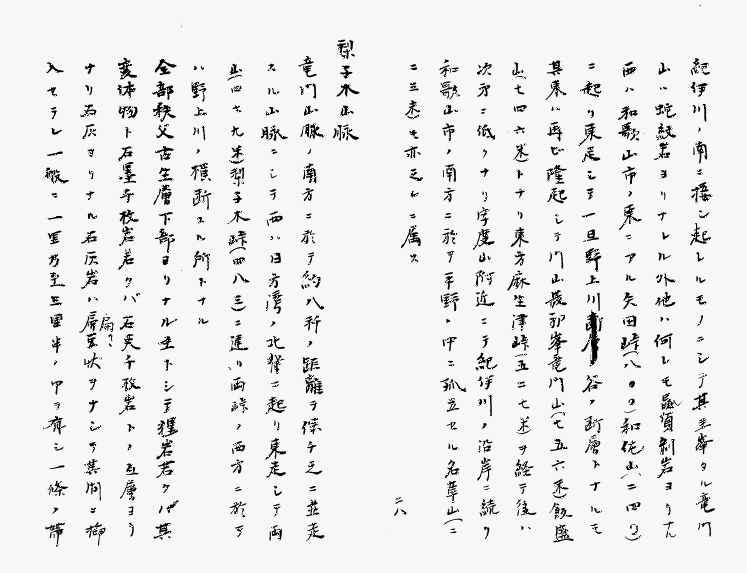 紀伊川ノ南ニ接シ起レルモノニシテ其主峯タル竜門
山ハ蛇紋岩ヨリナレル外他ハ何レモ
西ハ和歌山市ノ東ニアル矢田峠(八〇〇)和佐山(二四〇)
ニ起リ東走シテ一旦野上川谷ノ断層トナルモ
其東ハ再ビ隆起シテ川山最初峯竜門山(七五六米)飯盛
山(七四六米)トナリ東方麻生津峠(五二七米)ヲ経テ後ハ
次第ニ低クナリ字度山附近ニテ紀伊川ノ沿岸ニ続ク
和歌山市ノ南方ニ於テ平野ノ中ニ孤立セル名草山(二
二三米)モ亦之レニ属ス
二八
梨子木山脈
竜門山脈ノ南方ニ於テ約八粁ノ距離ヲ保チ之ニ並走
スル山脈ニシテ西ハ日方湾ノ北ニ起リ東走シテ雨
山(四七九米)梨子木峠(四八三)ニ連リ両峠ノ西方ニ於テ
ハ野上川ノ横断スル所トナル
全部秩父古生層下部ヨリナル主トシテ岩若クバ其
変体物ト石墨千枚岩若クバ石英千枚岩トノ互層ヨリ
ナリ石灰ヨリナル石灰岩ハ扁豆状ヲナシテ其間ニ挿
入セラレ一般ニ一里乃至三里半ノ巾ヲ有シ一條ノ帯